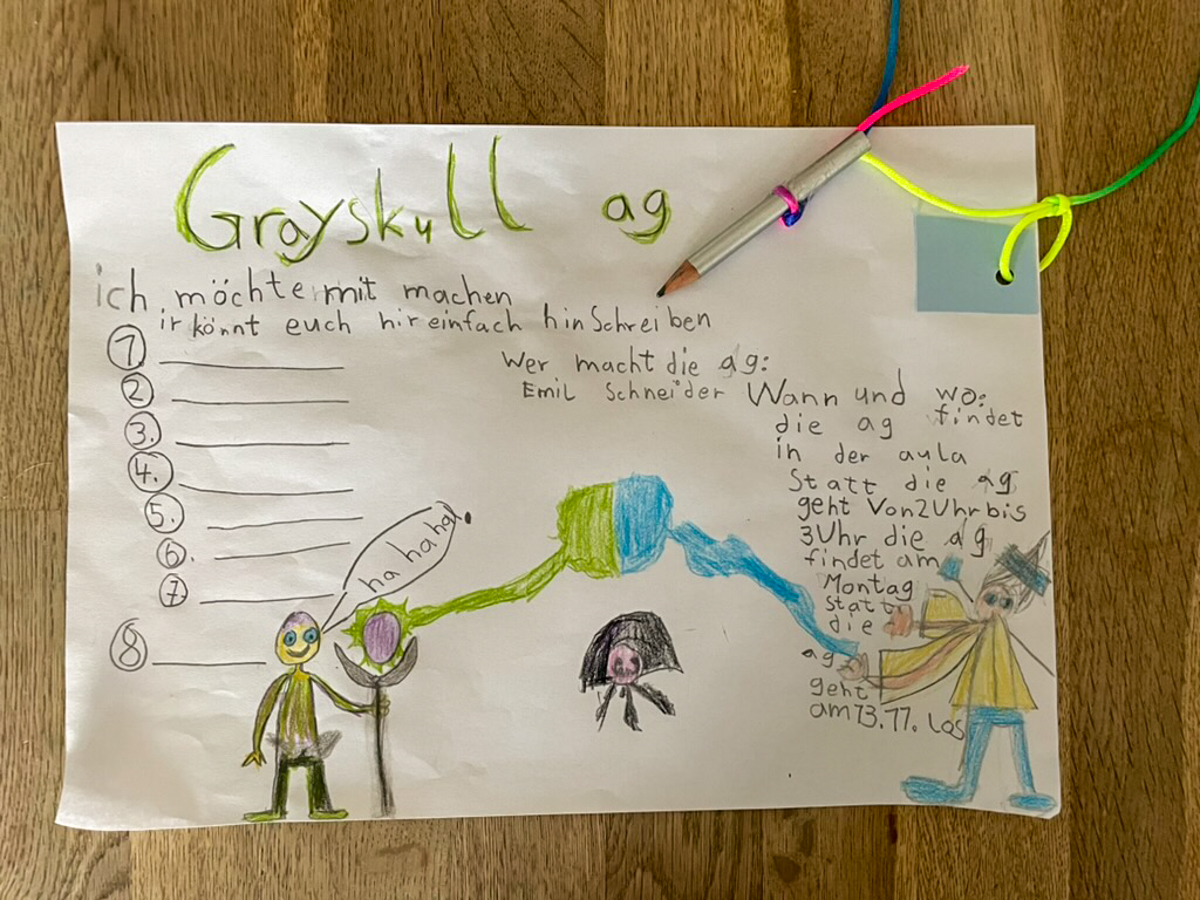 Grayskull ag
ich möchte mit machen
ir könnt euch hir einfach hin Schreiben
1.
2
3.
4.
5.
6.
7
8
Wer macht die ag:
Emil Schneider
Wann und wo:
die ag findet
in der aula
Statt die ag
geht Von 2 Uhr bis
3 Uhr die ag
findet am
Montag
statt
die
ag
geht
am 13.11. los
ha ha ha!